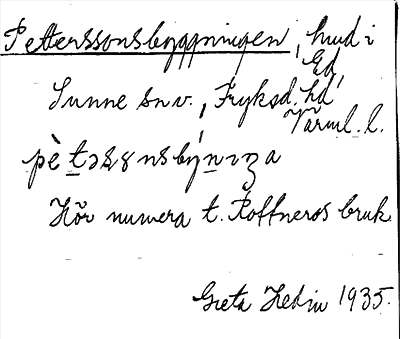 Petterssonsbyggningen, hmd i
Ed,
Sunne sn v., Fryksd. hd
Värml. l.
Hör numera t. Roffneros bruk
Greta Hedin 1935.